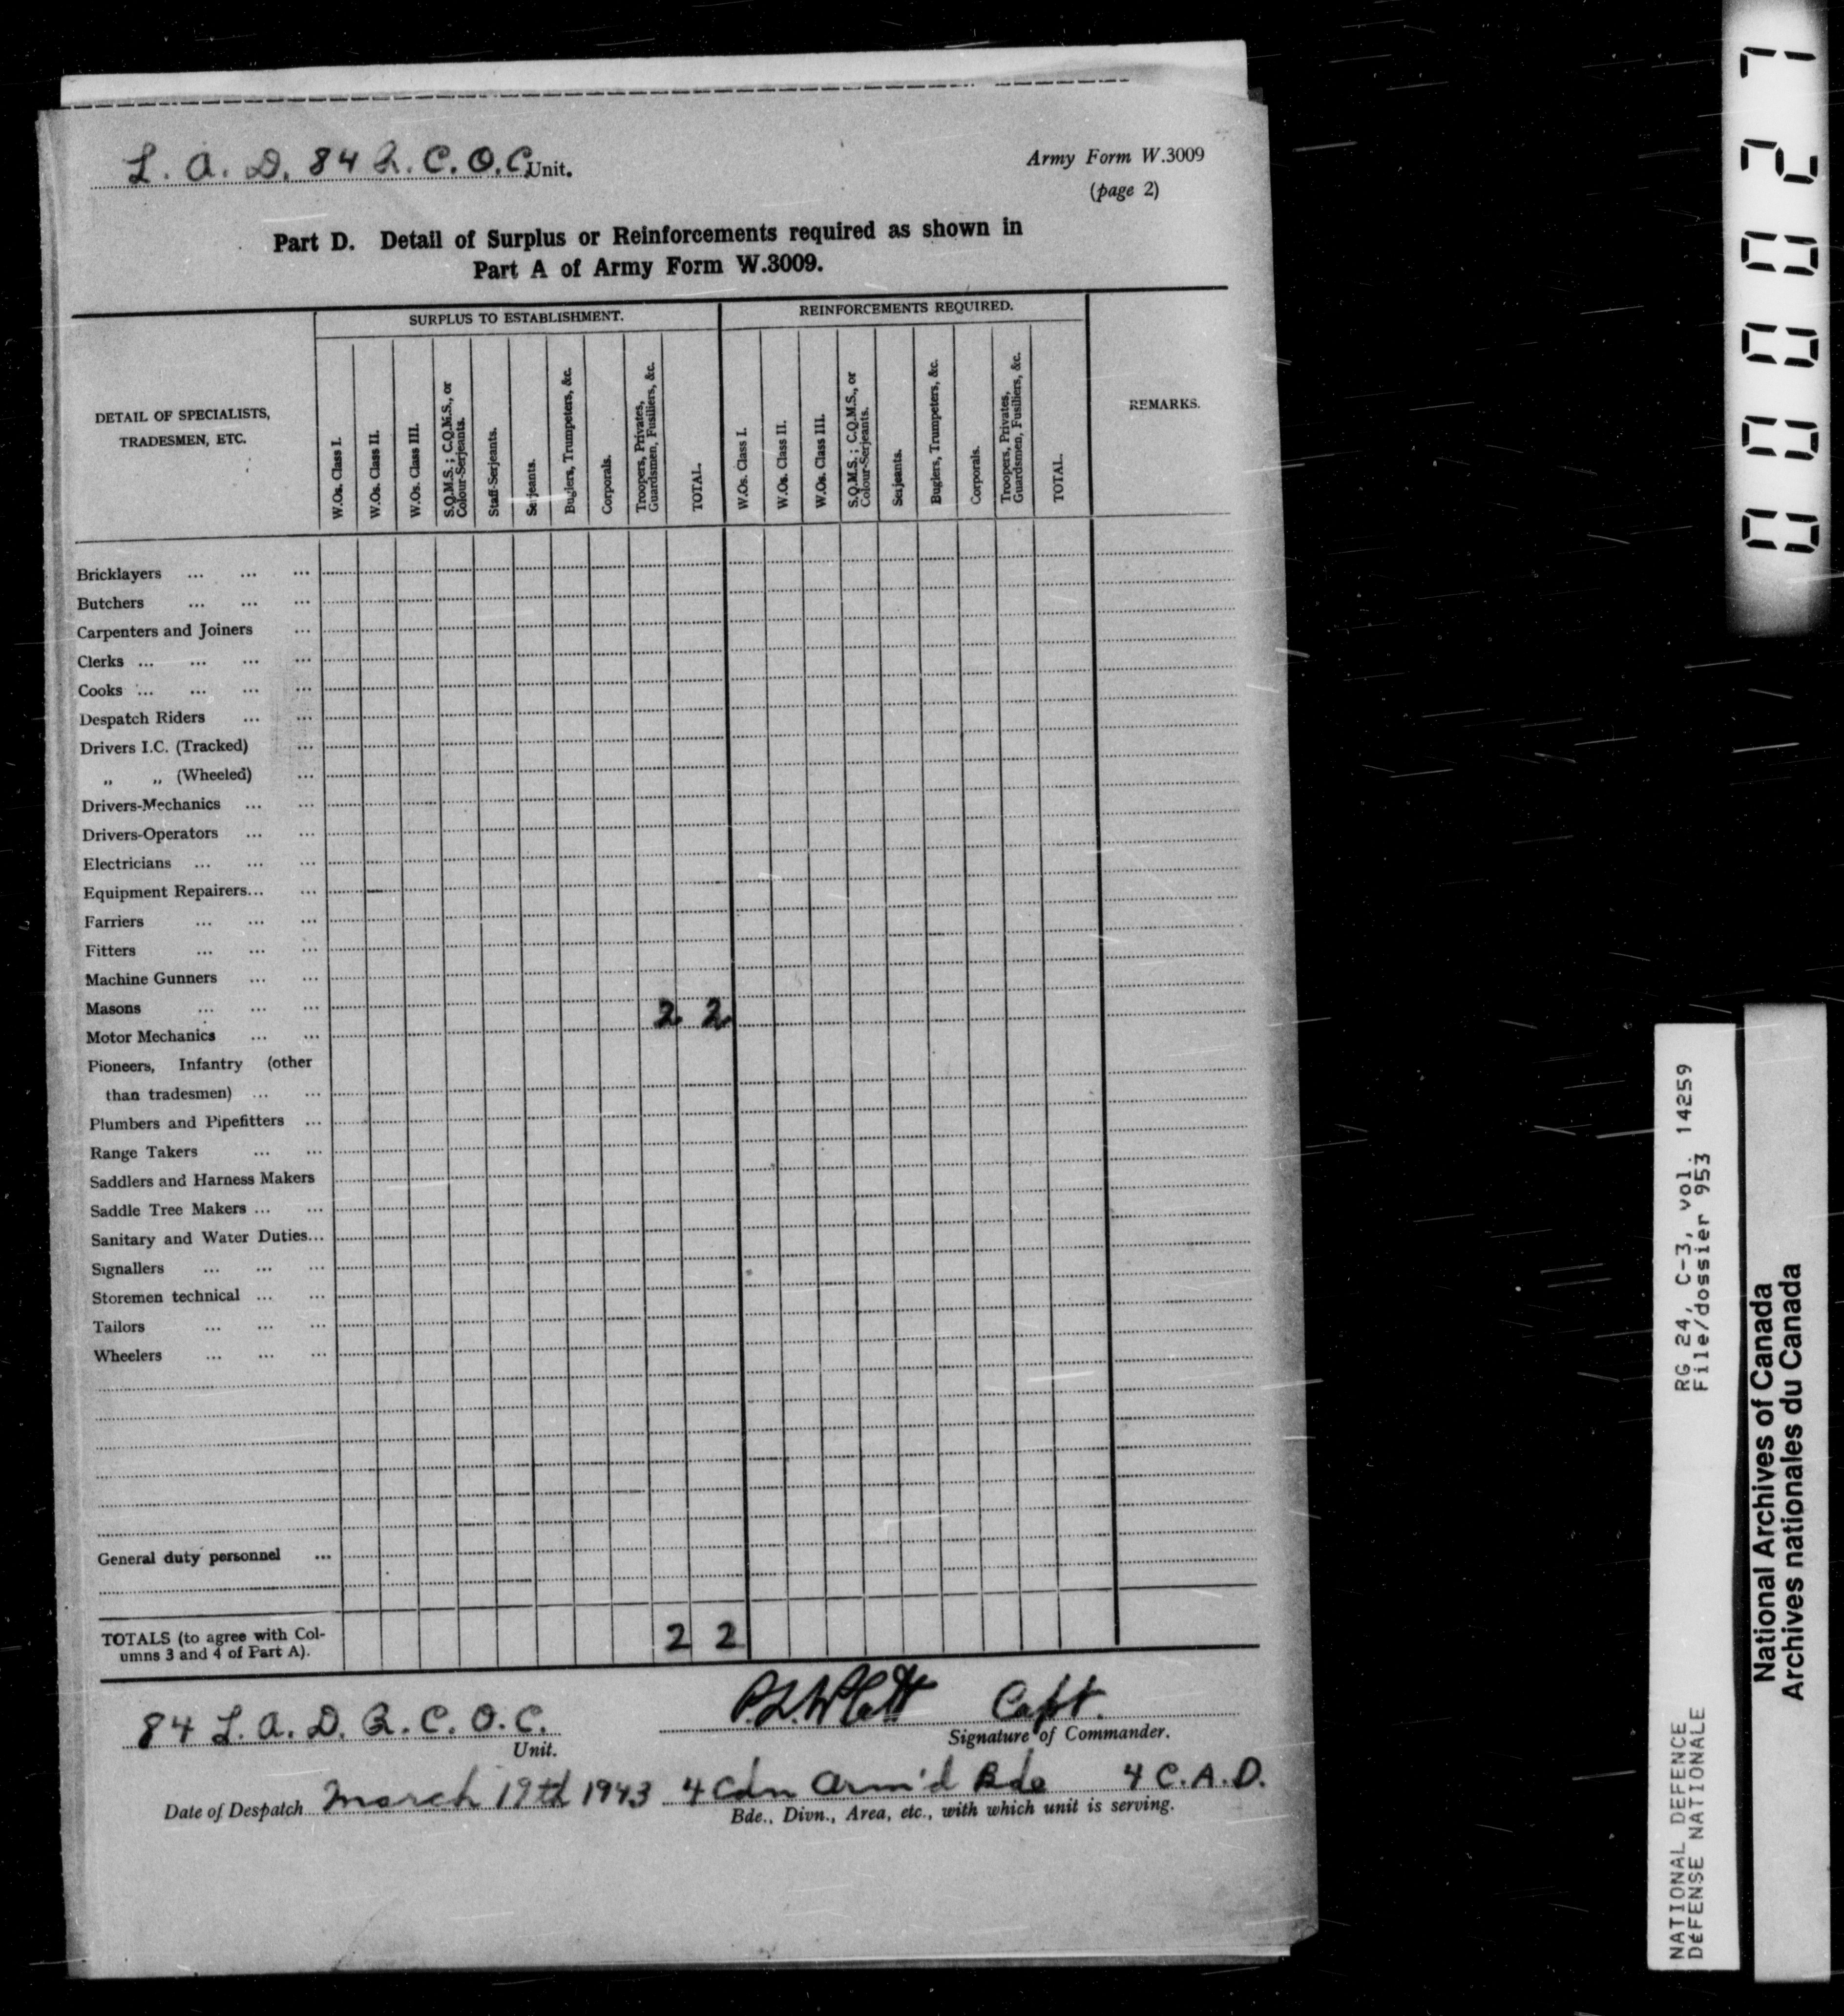 L. A. D. 84 R.C.O.C. Unit.
Army Form W.3009
(page 2)
Part D. Detail of Surplus or Reinforcements required as shown in
Part A of Army Form W.3009.
DETAIL OF SPECIALISTS,
TRADESMEN, ETC.
SURPLUS TO ESTABLISHMENT.
REINFORCEMENTS REQUIRED.
REMARKS.
W.Os. Class I.
W.Os. Class II.
W.Os. Class III.
S.Q.M.S.; C.Q.M.S., or
Colour-Serjeants.
Staff-Serjeants.
Serjeants.
Buglers, Trumpeters, &c.
Corporals.
Troopers, Privates,
Guardsmen, Fusiliers, &c.
TOTAL.
W.Os. Class I.
W.Os. Class II.
W.Os. Class III.
S.Q.M.S.; C.Q.M.S., or
Colour-Serjeants.
Serjeants.
Buglers, Trumpeters, &c.
Corporals.
Troopers, Privates,
Guardsmen, Fusiliers, &c.
TOTAL.
Bricklayers ... ... ...
Butchers ... ... ...
Carpenters and Joiners ...
Clerks ... ... ... ...
Cooks ... ... ... ...
Despatch Riders ... ...
Drivers I.C. (Tracked) ...
„ „ (Wheeled) ...
Drivers-Mechanics ... ...
Drivers-Operators ... ...
Electricians ... ... ...
Equipment Repairers... ...
Farriers ... ... ...
Fitters ... ... ...
Machine Gunners ... ...
Masons ... ... ...
Motor Mechanics ... ... 2 2
Pioneers, Infantry (other
than tradesmen) ... ...
Plumbers and Pipefitters ...
Range Takers ... ...
Saddlers and Harness Makers
Saddle Tree Makers ... ...
Sanitary and Water Duties...
Signallers ... ... ...
Storemen technical ... ...
Tailors ... ... ...
Wheelers ... ... ...
General duty personnel ...
TOTALS (to agree with Col-
umns 3 and 4 of Part A). 2 2
84 L.A.D. R.C.O.C.
Unit.
Capt.
Signature of Commander.
Date of Despatch March 19th 1943 4 Cdn Arm'd Bde 4 C.A.D.
Bde., Divn., Area, etc., with which unit is serving.
000027
RG 24, C-3, vol. 14259
File/dossier 953
NATIONAL DEFENCE
DÉFENSE NATIONALE
National Archives of Canada
Archives nationales du Canada